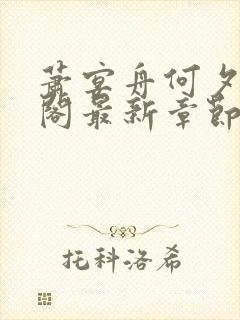 萧宴舟何夕
阁最新章节
托科洛希